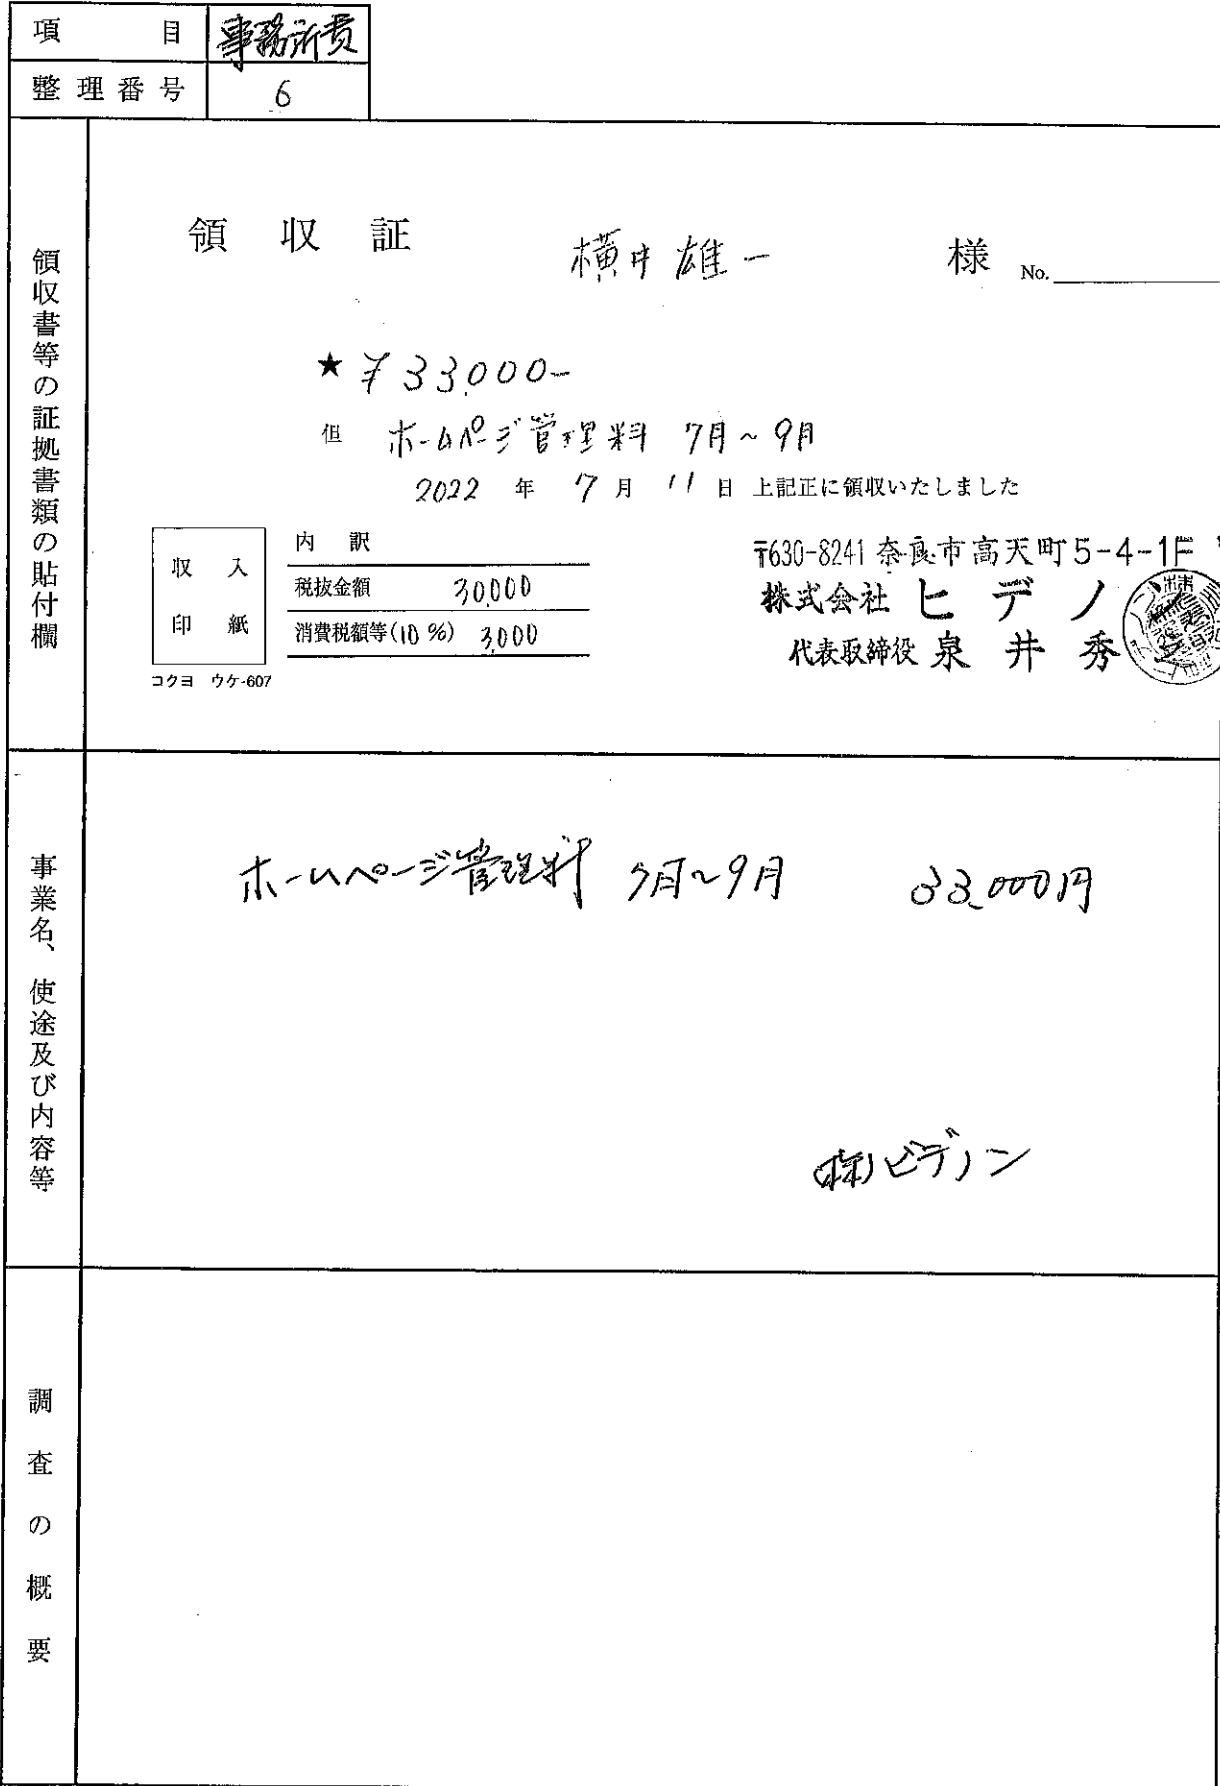 項 目 事務所費
整理番号 6
領収書等の証拠書類の貼付欄
領 収 証 横井雄一 様 No.
★ ¥33,000-
但 ホームページ管理料 7月~9月
2022 年 7 月 11 日 上記正に領収いたしました
収 入
印 紙
内 訳
税抜金額 30,000
消費税額等(10%) 3,000
コクヨ ウケ-607
〒630-8241 奈良市高天町5-4-1F
株式会社 ヒデノン
代表取締役 泉 井 秀
事業名、使途及び内容等
ホームページ管理料 7月~9月 33,000円
(株)ヒデノン
調査の概要